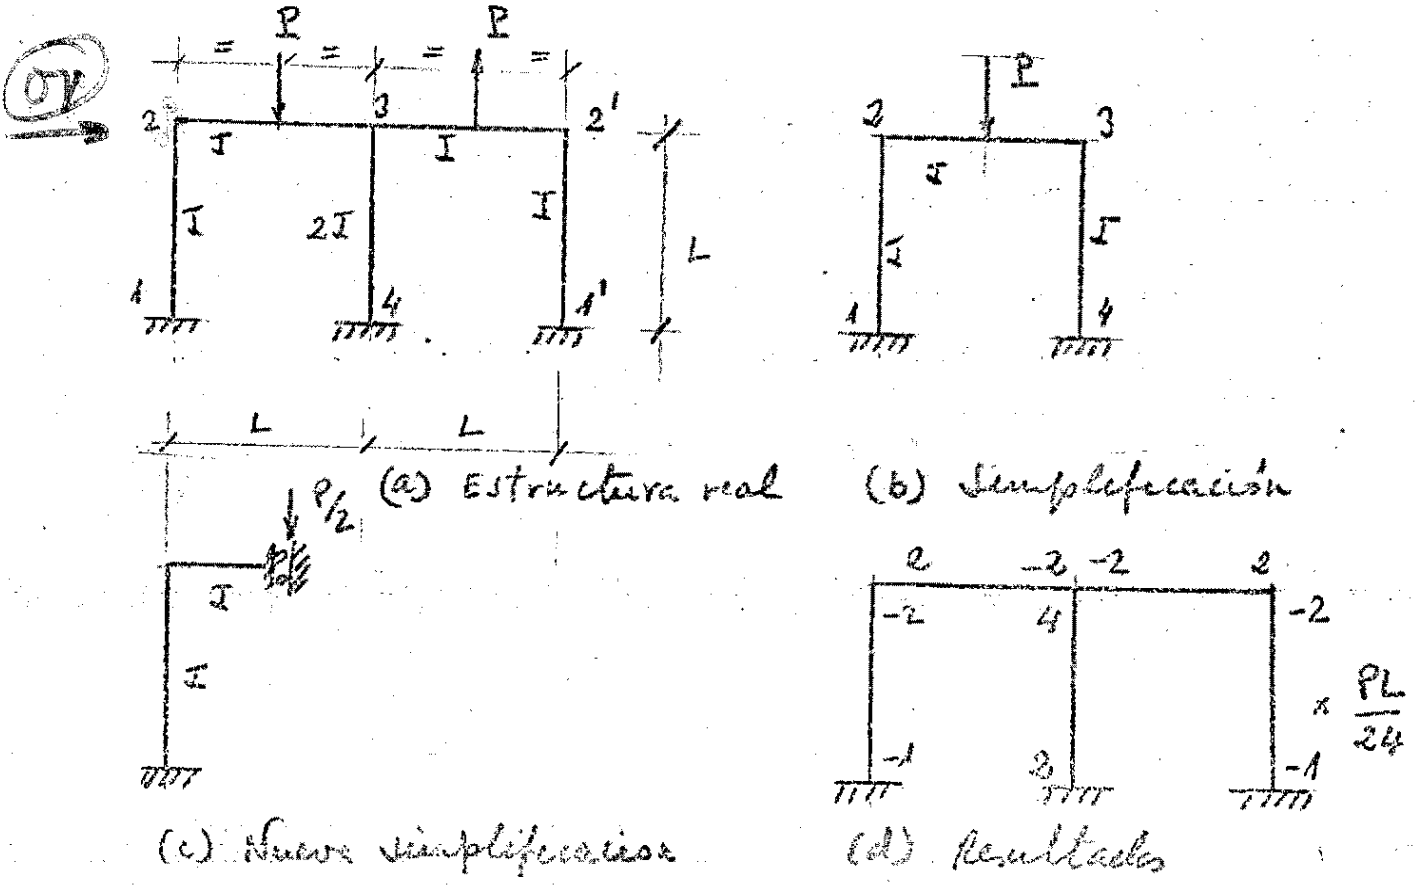 P P
= = = =
2 3 2'
I I
I 2I I
1 4 1'
L
L L
(a) Estructura real
P
2 3
I
I I
1 4
(b) Simplificación
P/2
I
I
(c) Nueva simplificacion
2 -2 -2 2
-2 4 -2
-1 2 -1
x PL/24
(d) Resultados